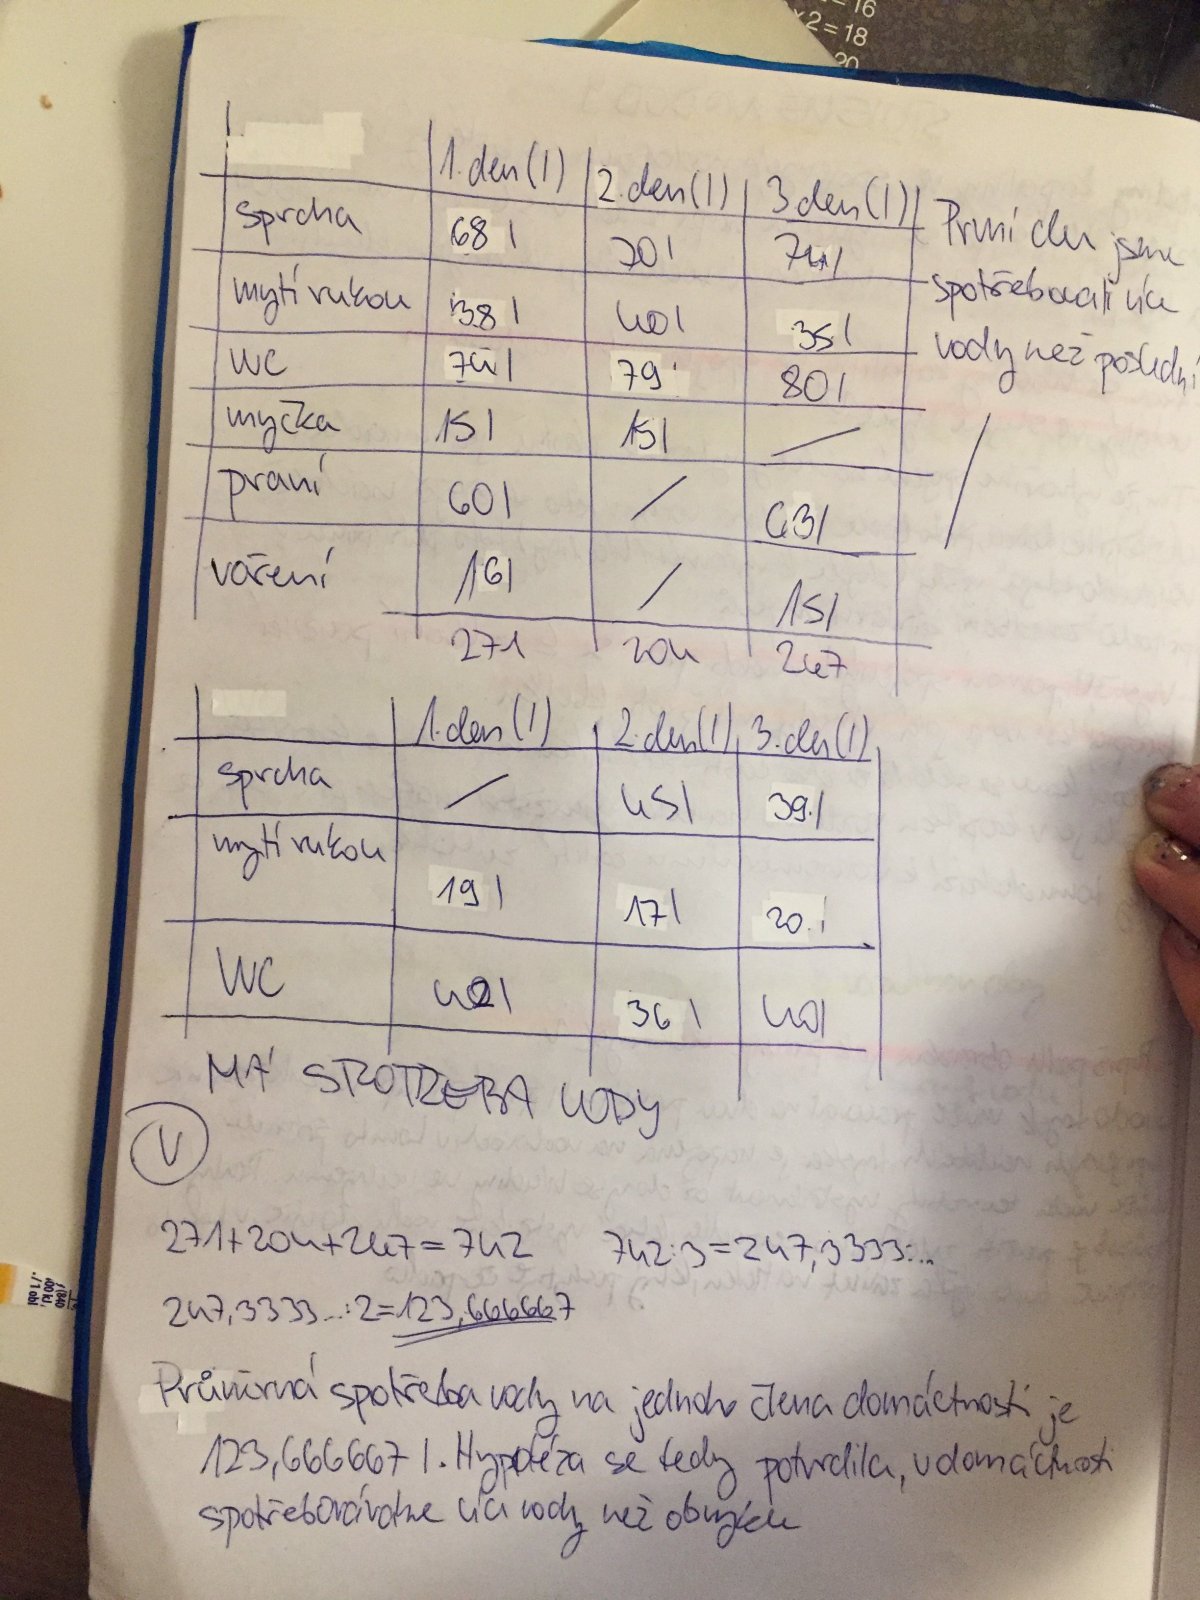 =16
x2=18
20
1.den(l) 2.den(l) 3.den(l)
sprcha 68 l 70 l 74 l
mytí rukou 38 l 40 l 35 l
WC 74 l 79 80 l
myčka 15 l 15 l /
praní 60 l / 63 l
vaření 16 l / 15 l
271 204 247
První den jsme
spotřebovali více
vody než poslední
1.den(l) 2.den(l) 3.den(l)
sprcha / 45 l 39 l
mytí rukou 19 l 17 l 20 l
WC 40 l 36 l 40 l
MÁ SPOTŘEBA VODY
V
271+204+247=742 742:3=247,3333...
247,3333...:2=123,666667
Průměrná spotřeba vody na jednoho člena domácnosti je
123,666667 l. Hypotéza se tedy potvrdila, v domácnosti
spotřebováváme víc vody než obvykle